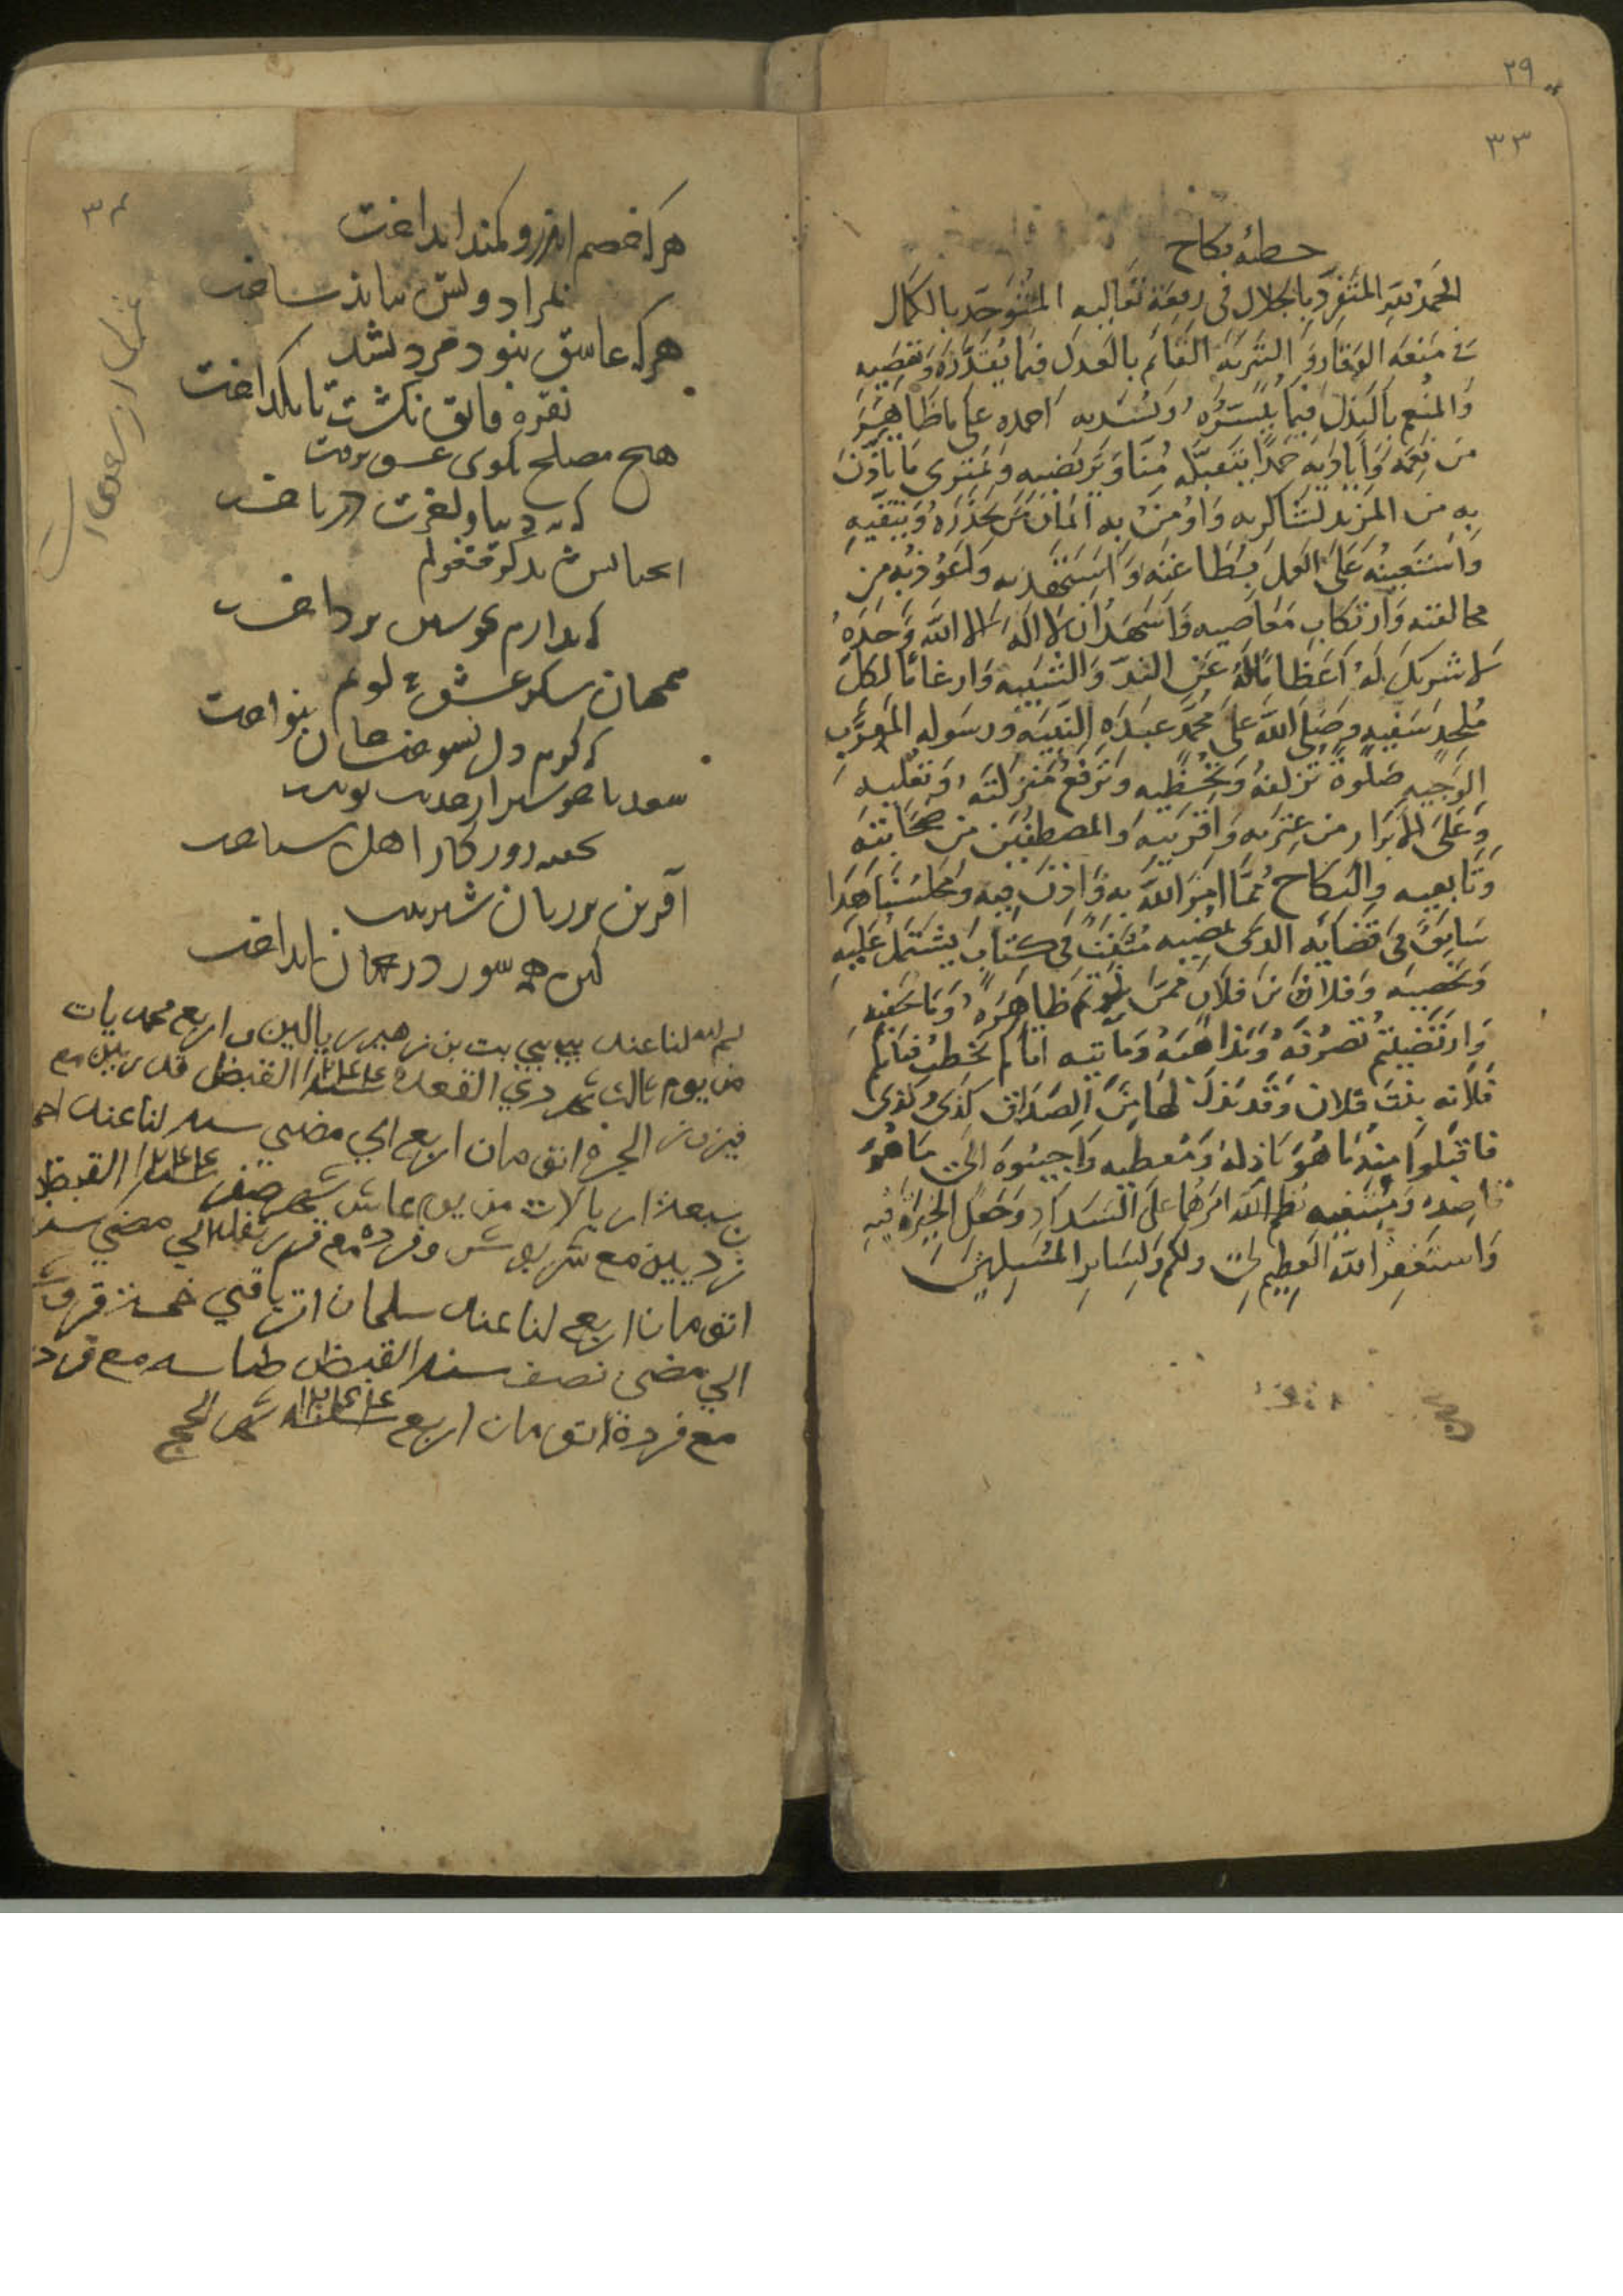 ٢٩
٣٣
خطبة نكاح
الحمد لله المتفرد بالجلال في ربعة تعاليه المتوحد بالكمال
في منعة الوقار والتنزيه القائم بالعدل فيما يقدره ويقضيه
والمنعم بالبذل فيما ييسره ويسديه احمده على ما ظاهر
من نعمه واياديه حمدا يتقبله منا ويرتضيه ونمتري ما ياذن
به من المزيد لشاكريه واومن به ايمان من يحذره ويتقيه
واستعينه على العمل بطاعته واستهديه واعوذ به من
مخالفته وارتكاب معاصيه واشهد ان لا اله الا الله وحده
لا شريك له اعظاما له عن الند والتشبيه وارغاما لكل
ملحد سفيه وصلى الله على محمد عبده النبيه ورسوله المقرب
الوجيه صلوة تزلفه وتحظيه وترفع منزلته وتعليه
وعلى الابرار من عترته واقربيه والمصطفين من صحابته
وتابعيه والنكاح مما امر الله به واذن فيه ومجلسنا هذا
سابق في قضايه الذي يمضيه مثبت في كتاب يشتمل عليه
ويحصيه وفلان بن فلان ممن بلوتم ظاهره وما يخفيه
وارتضيتم تصرفه ومذاهبه وما ياتيه اتاكم يخطب فتاتكم
فلانة بنت فلان وقد بذل لها من الصداق كذى وكذى
فاقبلوا منه ما هو باذله ومعطيه واجيبوه الى ما هو
قاصده ومبتغيه نظم الله امرهما على السداد وجعل الخيرة فيه
واستغفر الله العظيم لي ولكم ولساير المسلمين
٣٤
غزل از سعدی است
هرکه خصم اندرو کمند انداخت
بمراد ویش بباید ساخت
هرکه عاشق نبود مرد نشد
نقره فائق نگشت تا نگداخت
هیچ مصلح بکوی عشق نرفت
که نه دنیا و اخرت درباخت
انچنانش بذکر مشغولم
که ندارم بخویشتن پرداخت
همچنان شکر عشق می کویم
که گرم دل بسوخت جان بنواخت
سعدیا خوشتر از حدیث تو نیست
تحفه روزگار اهل شناخت
آفرین بر زبان شیرینت
کین همه شور در جهان انداخت
لنا عند بيبي بنت بن زهير ريالين واربع محمديات
من يوم ثالث شهر ذي القعدة سنة ١٢٤٤ القبض
اتق مان اربع الى مضي سنة لنا عند
سبعة ريالات من يوم عاشر شهر صفر سنة ١٢٤٤ القبض
الى مضي سنة
اتق مان اربع لنا عند سلمان خمسة قروش
الى مضي نصف سنة القبض طاسه مع فردة
مع فردة اتق مان اربع سنة ١٢٤٤ شهر الحج